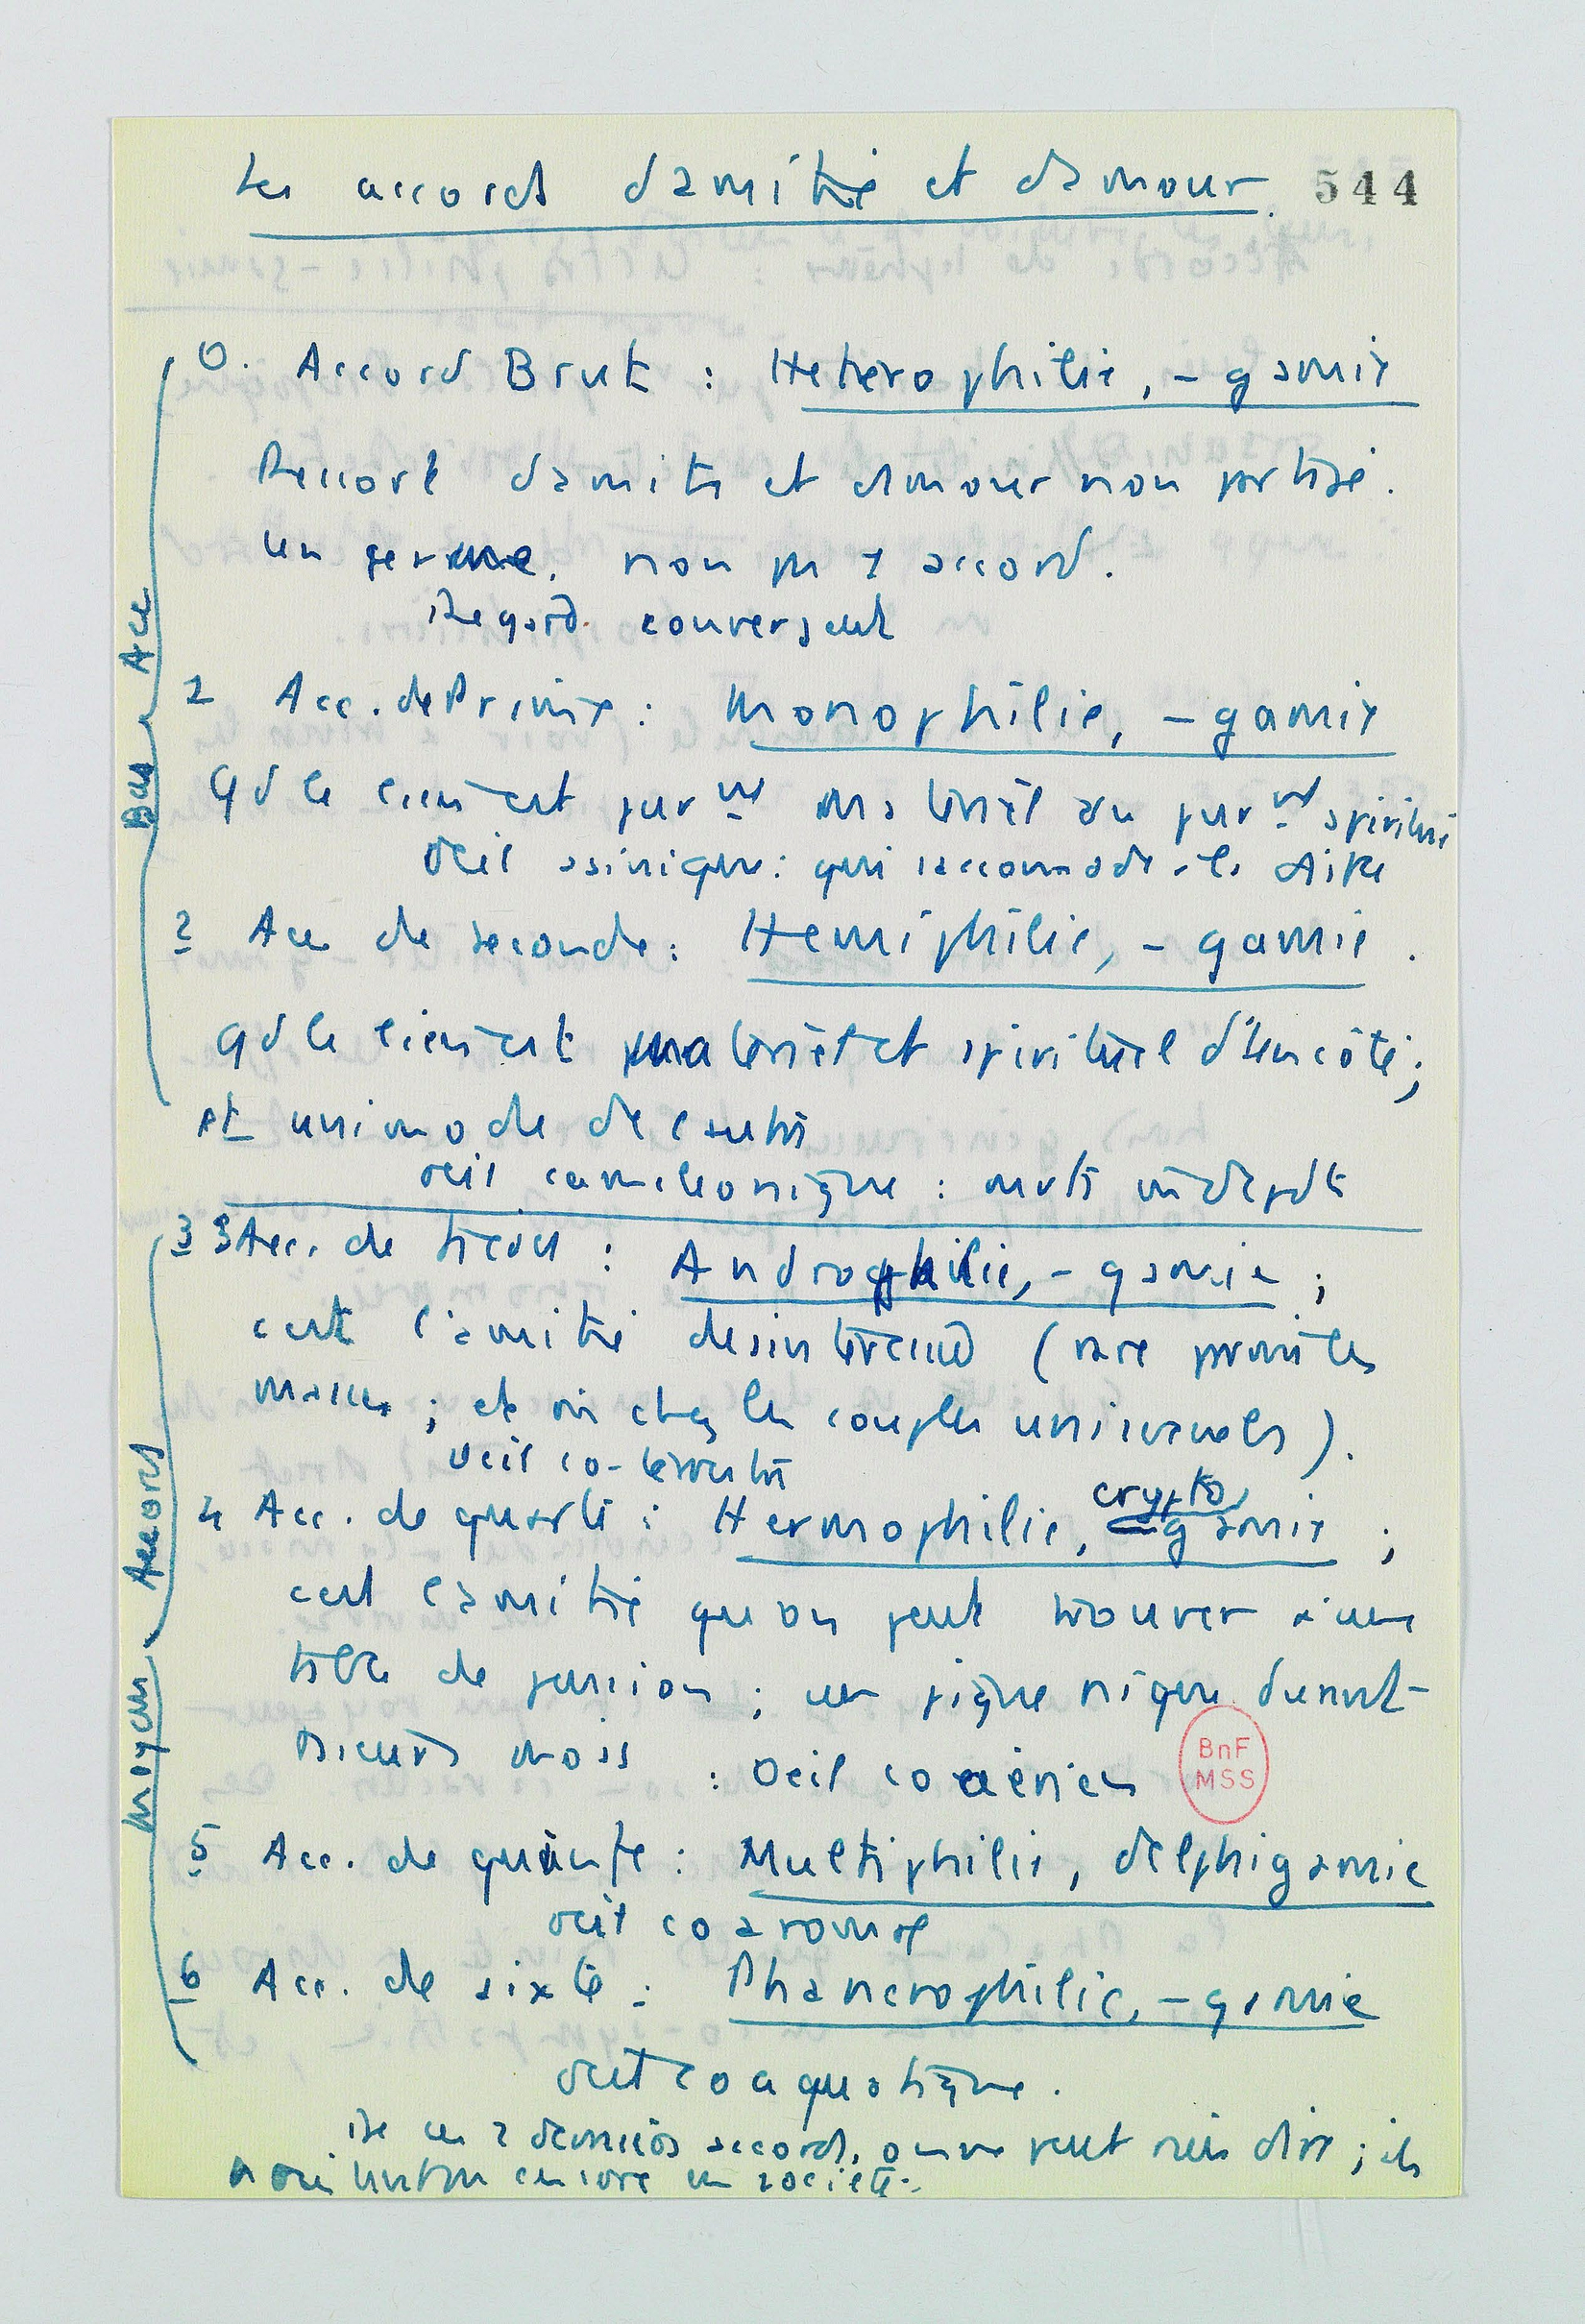 Les accords d'amitié et d'amour. 544
0. Accord Brut : Hétérophilie, - gamie
Accord d'amitié et d'amour non partagé.
Un germe. non pas 1 accord.
Regard
1 Acc. de Prime : Monophilie, - gamie
Qd le lien est pur nt matériel ou pur nt spirituel
Oeil
2 Acc de seconde : Hemiphilie, - gamie.
Qd le lien est matériel et spirituel d'un côté ;
et unimode de l'autre
oeil caméléonique :
3 Acc. de tierce : Androphilie, - gamie ;
cest l'amitié desinteressée (rare parmi les
; et chez les couples universels).
Oeil co-
4 Acc. de quarte : Hermophilie, cryptogamie ;
cest l'amitié qu'on peut trouver à une
table de pension ; un pique nique durant
plusieurs mois : Oeil co aérien
5 Acc. de quinte : Multiphilie, delphigamie
oeil co arome
6 Acc. de sixte : Phanerophilie, - gamie
oeil coaquatique.
De ces 2 derniers accords, on ne peut rien dire ; ils
n'existent pas encore en société.
Bas Acc
Moyens Accords
BnF
MSS